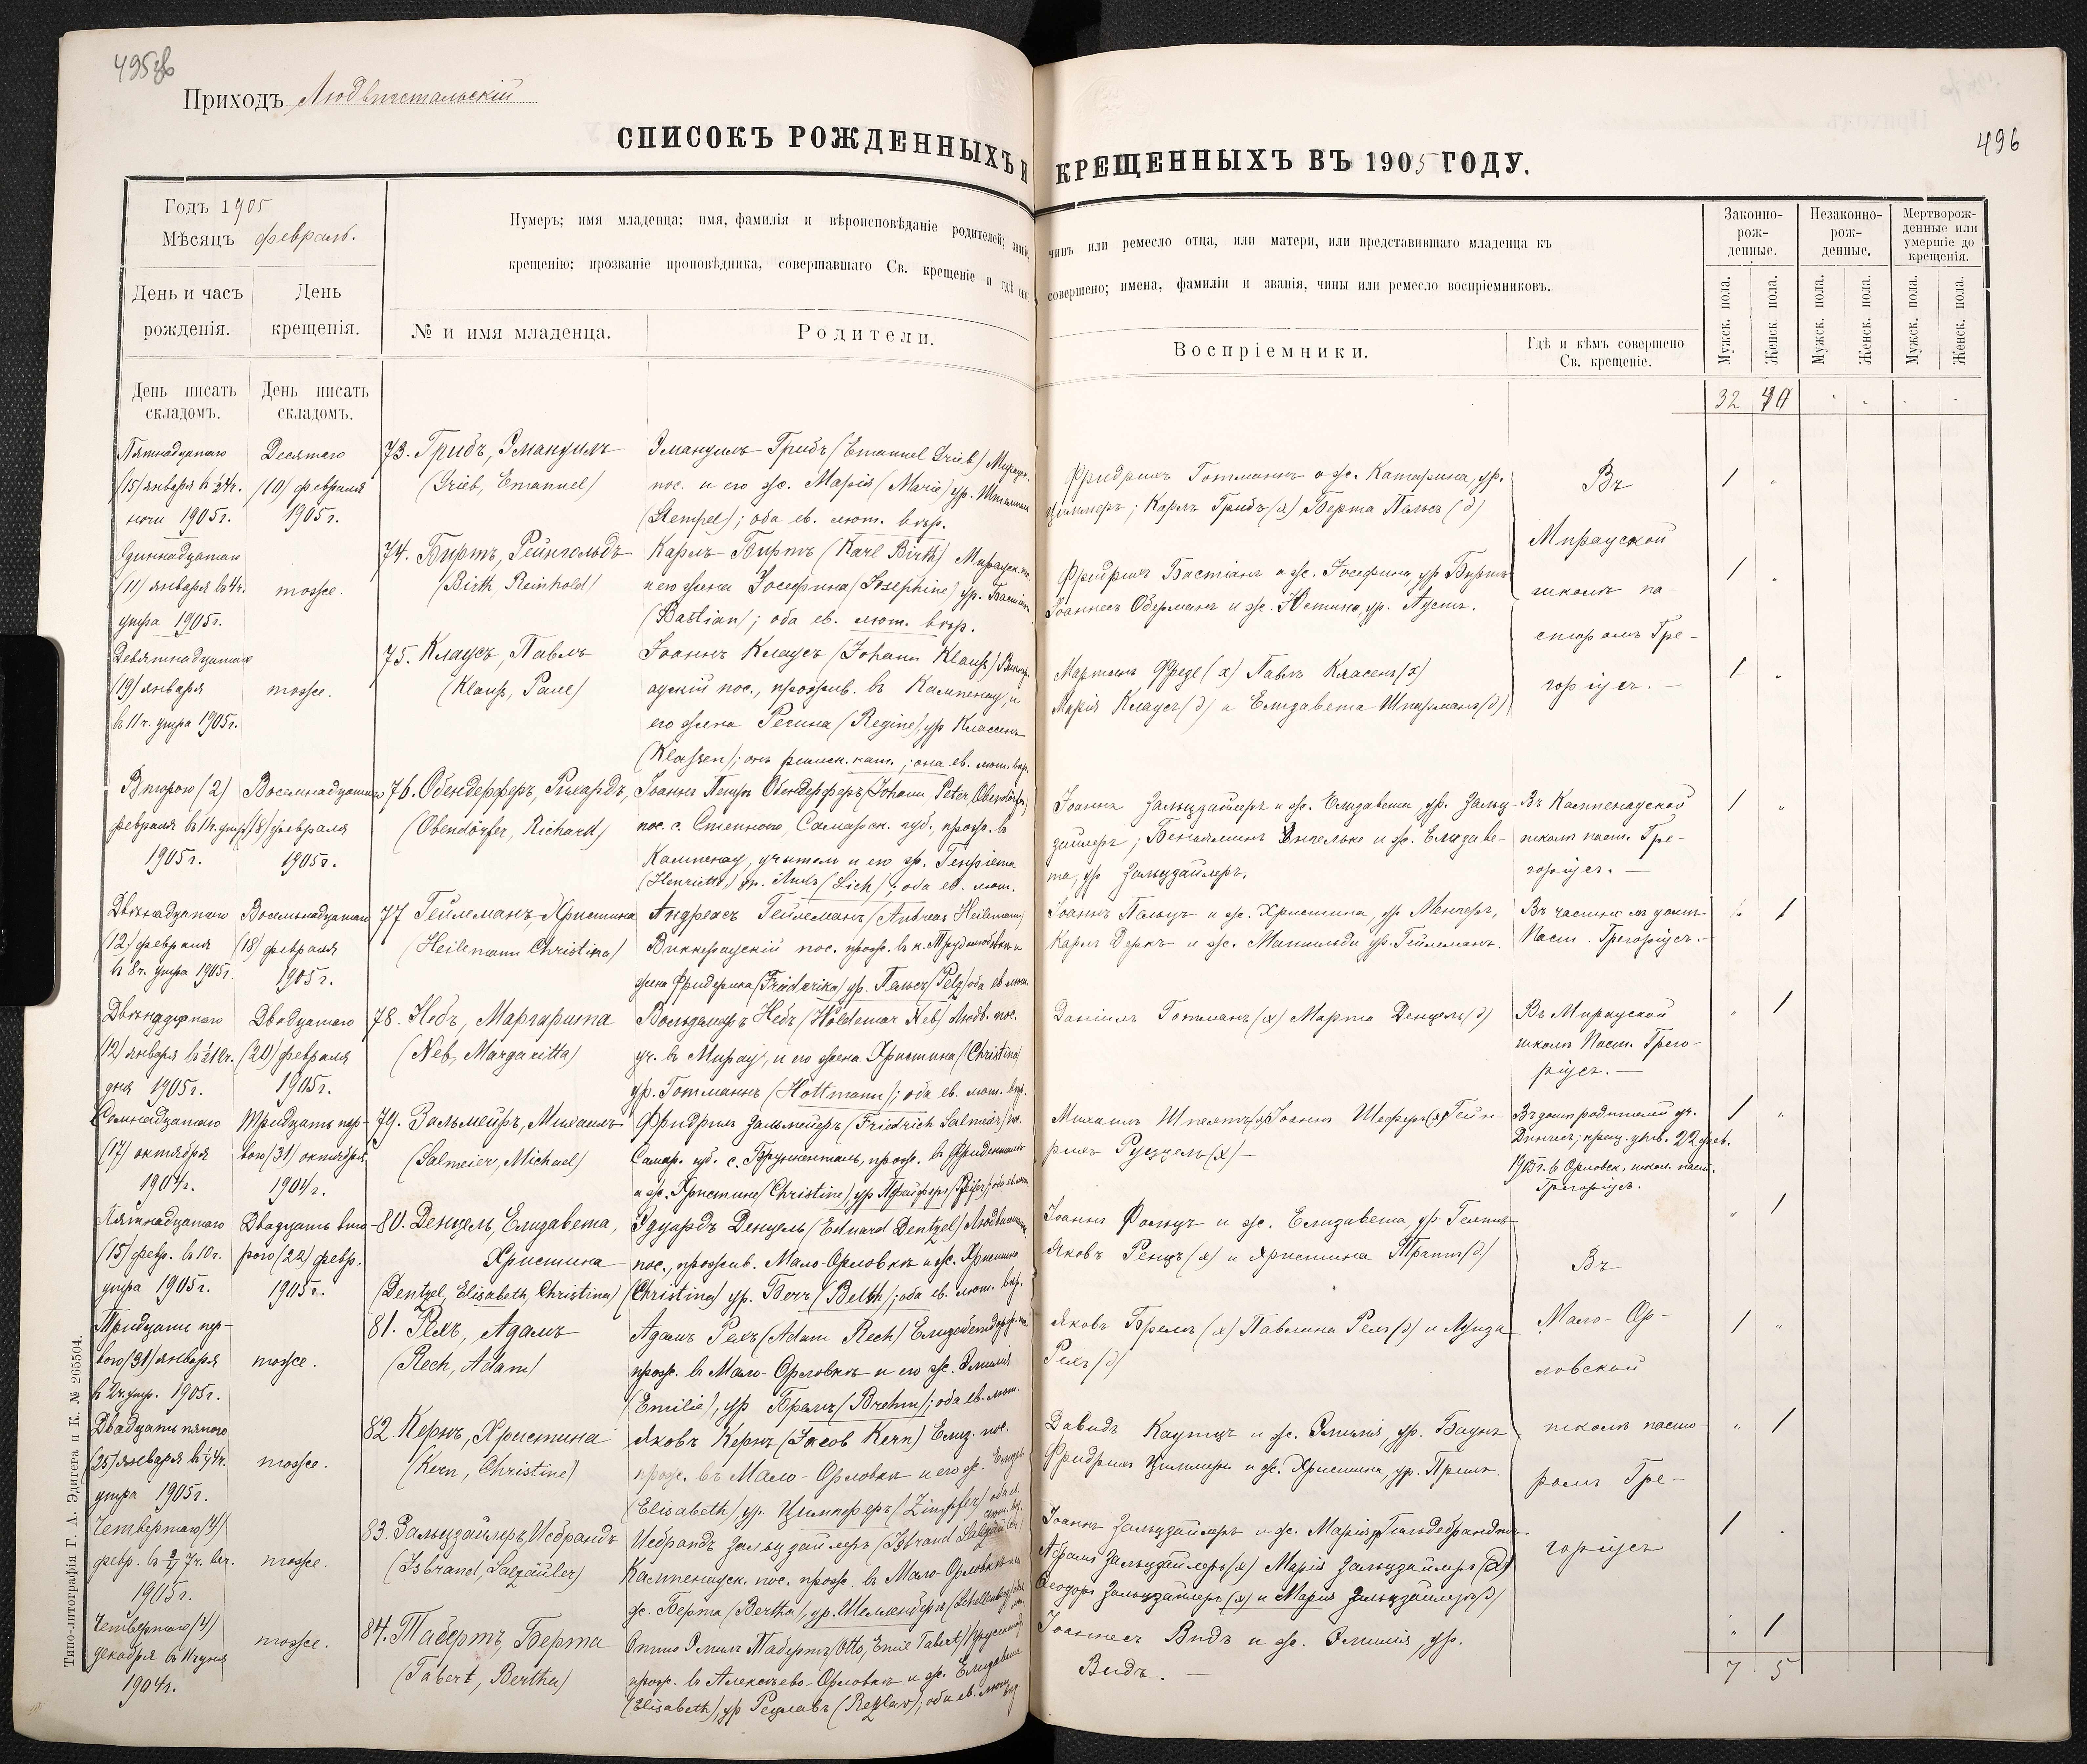 495об
Приходъ Людвигстальскій
496
СПИСОКЪ РОЖДЕННЫХЪ И КРЕЩЕННЫХЪ ВЪ 1905 ГОДУ.
Годъ 1905
Мѣсяцъ февраль.
День и часъ рожденія.
День крещенія.
День писать складомъ.
День писать складомъ.
Нумеръ; имя младенца; имя, фамилія и вѣроисповѣданіе родителей; званіе, чинъ или ремесло отца, или матери, или представившаго младенца къ
крещенію; прозваніе проповѣдника, совершавшаго Св. крещеніе и гдѣ оное совершено; имена, фамиліи и званія, чины или ремесло воспріемниковъ.
№ и имя младенца.
Родители.
Воспріемники.
Гдѣ и кѣмъ совершено Св. крещеніе.
Законно-рож-денные.
Незаконно-рож-денные.
Мертворож-денные или умершіе до крещенія.
Мужск. пола.
Женск. пола.
Мужск. пола.
Женск. пола.
Мужск. пола.
Женск. пола.
32 40
Пятнадцатаго
(15) января в ½4ч.
ночи 1905г.
Десятаго
(10) февраля
1905г.
73. Грибъ, Эмануилъ
(Grieb, Emanuel)
Эмануилъ Грибъ (Emanuel Grieb)
пос. и его ж. Марія (Marie) ур.
(Stempel); оба ев. лют. вѣр.
Фридрихъ Готманнъ и ж. Катарина, ур.
Циммеръ; Карлъ Грибъ (х) Берта Пельсъ (д)
Въ
Мирауской
школѣ па-
сторомъ Гре-
горіусъ.
1
Одиннадцатаго
(11) января в 4ч.
утра 1905г.
тоже.
74. Биртъ, Рейнгольдъ
(Birth, Reinhold)
Карлъ Биртъ (Karl Birth) Мирауск.
и его жена Іосефина (Josephine) ур. Бастіанъ
(Bastian); оба ев. лют. вѣр.
Фридрихъ Бастіанъ и ж. Іосефина, ур. Биртъ
Іоаннесъ Оберманъ и ж. Юстина, ур.
1
Девятнадцатаго
(19) января
в 11ч. утра 1905г.
тоже.
75. Клаусъ, Павлъ
(Klauß, Paul)
Іоаннъ Клаусъ (Johann Klauß)
аускій пос., прожив. въ Кампенау, и
его жена Регина (Regine), ур Классенъ
(Klaßen); онъ римск. кат.; она ев. лют. вѣр.
Мартинъ (х) Павлъ Класенъ (х)
Марія Клаусъ (д) и Елизавета (д)
1
Второго (2)
февраля в 1ч. утра
1905г.
Восемнадцатаго
(18) февраля
1905г.
76. Обендерферъ, Рихардъ,
(Obendörfer, Richard)
Іоаннъ Петръ Обендерферъ (Johann Peter Obendörfer)
пос. с. Степного, Самарск. губ., прож. в
Кампенау, учитель и его ж. Генріета
(Henriette) ур. Лихъ (Lich); оба ев. лют.
Іоаннъ Зальцзайлеръ и ж. Елизавета, ур. Зальц-
зайлеръ; Беньяминъ и ж. Елизаве-
та, ур Зальцзайлеръ.
Въ Кампенауской
школѣ паст. Гре-
горіусъ.
1
Двѣнадцатаго
(12) февраля
в 8ч. утра 1905г.
Восемнадцатаго
(18) февраля
1905г.
77 Гейлеманъ, Христина
(Heilemann Christina)
Андреасъ Гейлеманъ (Andreas Heilemann)
Виккераускій пос. прож. в к. Трудолюбовкѣ и
жена Фридерика (Friederika) ур. Пельсъ (Pelz) оба ев лют.
Іоаннъ Пельцъ и ж. Христина, ур
Карлъ Деркъ и ж. Матильда ур. Гейлеманъ.
Въ частномъ домѣ
Паст. Грегоріусъ.
1
Двѣнадцатаго
(12) января в ½12ч.
дня 1905г.
Двадцатаго
(20) февраля
1905г.
78. Небъ, Маргарита
(Neb, Margaritta)
Вольдемаръ Небъ (Woldemar Neb) Людв. пос.
уч. в Мирау, и его жена Христина (Christina)
ур. Готманнъ (Hottmann); оба ев. лют. вѣр.
Даніилъ Готманъ (х) Марта Денцель (д)
Въ Мирауской
школѣ Паст. Грего-
ріусъ.
1
Семнадцатаго
(17) октября
1904г.
Тридцать пер-
вого (31) октября
1904г.
79. Зальмейръ, Михаилъ
(Salmeier, Michael)
Фридрихъ Зальмейеръ (Friedrich Salmeier) пос.
Самар. губ. с. Брунненталь, прож. в Фриденталѣ
и ж. Христина (Christine), ур Пфейферъ
Михаилъ Іоаннъ Шеферъ (х) Гейн-
рихъ (х)
Въ домѣ родителей уч.
22 фев.
1905г. в Орловск. школ. паст.
Грегоріусъ.
1
Пятнадцатаго
(15) февр. в 10ч.
утра 1905г.
Двадцать вто-
рого (22) февр.
1905г.
80. Денцель, Елизавета,
Христина
(Dentzel, Elisabeth, Christina)
Эдуардъ Денцель (Eduard Dentzel)
пос., прожив. Мало-Орловкѣ и ж. Христина
(Christina) ур. оба ев. лют. вѣр.
Іоаннъ Фольцъ и ж. Елизавета, ур.
Яковъ Ренцъ (х) и Христина (д)
Въ
Мало-Ор-
ловской
школѣ пасто-
ромъ Гре-
горіусъ
1
Тридцать пер-
вого (31) января
в 2ч. утр. 1905г.
тоже.
81. Рехъ, Адамъ
(Rech, Adam)
Адамъ Рехъ (Adam Rech)
прож. в Мало-Орловкѣ и его ж. Эмилія
(Emilie), ур Бремъ (Brehm); оба ев. лют.
Яковъ Бремъ (х) Павлина Рехъ (д) и Луиза
Рехъ (д)
1
Двадцать пятого
(25) января в ½4ч.
утра 1905г.
тоже.
82. Кернъ, Христина
(Kern, Christine)
Яковъ Кернъ (Jacob Kern) Елиз. пос.
прож. въ Мало-Орловкѣ и его ж.
(Elisabeth), ур. Цимпферъ (Zimpfer) оба ев.
Давидъ Каутцъ и ж. Эмилія, ур.
Фридрихъ Циммеръ и ж. Христина, ур.
1
Четвертаго (4)
февр. в 7ч. веч.
1905г.
тоже.
83. Зальцзайлеръ, Исбрандъ
(Isbrand, Salzäuler)
Исбрандъ Зальцзайлеръ (Isbrand
Кампенауск. пос. прож. в Мало-Орловкѣ
ж. Берта (Bertha), ур. Шелленбергъ (Schellenberg)
Іоаннъ Зальцзайлеръ и ж. Марія, Гильдебрандтъ
Абрамъ Зальцзайлеръ (х) Марія Зальцзайлеръ (д)
Феодоръ Зальцзайлеръ (х) и Марія Зальцзайлеръ (д)
1
Четвертаго (4)
декабря в 11ч дня
1904г.
тоже.
84. Табертъ, Берта
(Tabert, Bertha)
Отто Эмилъ Табертъ (Otto, Emil Tabert)
прож. в Алексѣево-Орловкѣ и ж. Елизавета
(Elisabeth), ур Рецлавъ (Retzlav); оба ев. лют. вѣр.
Іоаннесъ Видъ и ж. Эмилія, ур.
Видъ.
1
7 5
Типо-литографія Г. А. Эдигера и К. № 265504.